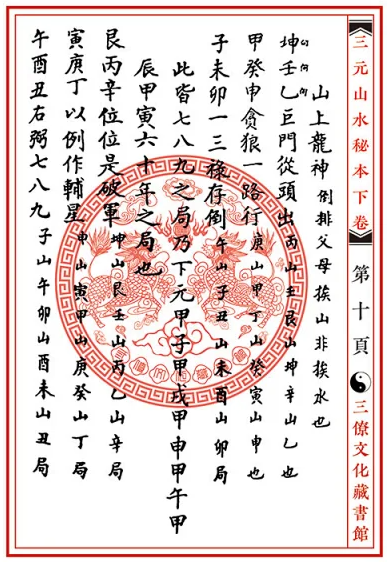 三元山水秘本下卷 第十頁 三僚文化藏書館
山上龍神 倒排父母挨山非挨水也
坤壬乙巨門從頭出 丙山壬艮山坤辛山乙也
甲癸申貪狼一路行 庚山甲丁山癸寅山申也
子未卯一三祿存倒 午山子丑山未酉山卯局
此皆七八九之局乃下元甲子甲戌甲申甲午甲
辰甲寅六十年之局也
艮丙辛位位是破軍 坤山艮壬山丙乙山辛局
寅庚丁以例作輔星 申山寅甲山庚癸山丁局
午酉丑右弼七八九 子山午卯山酉未山丑局